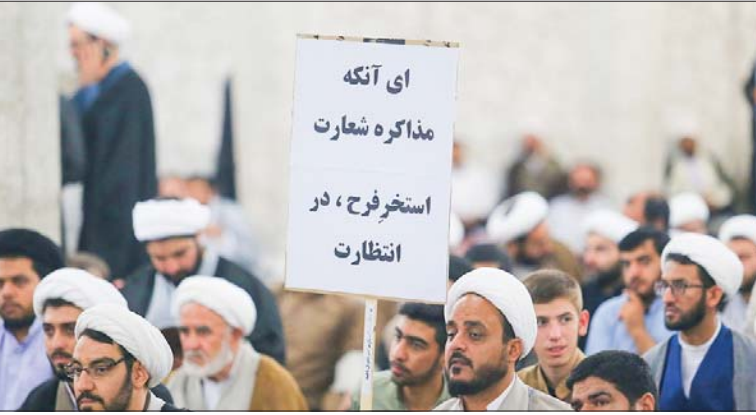 ای آنکه
مذاکره شعارت
استخرِفرح ، در
انتظارت